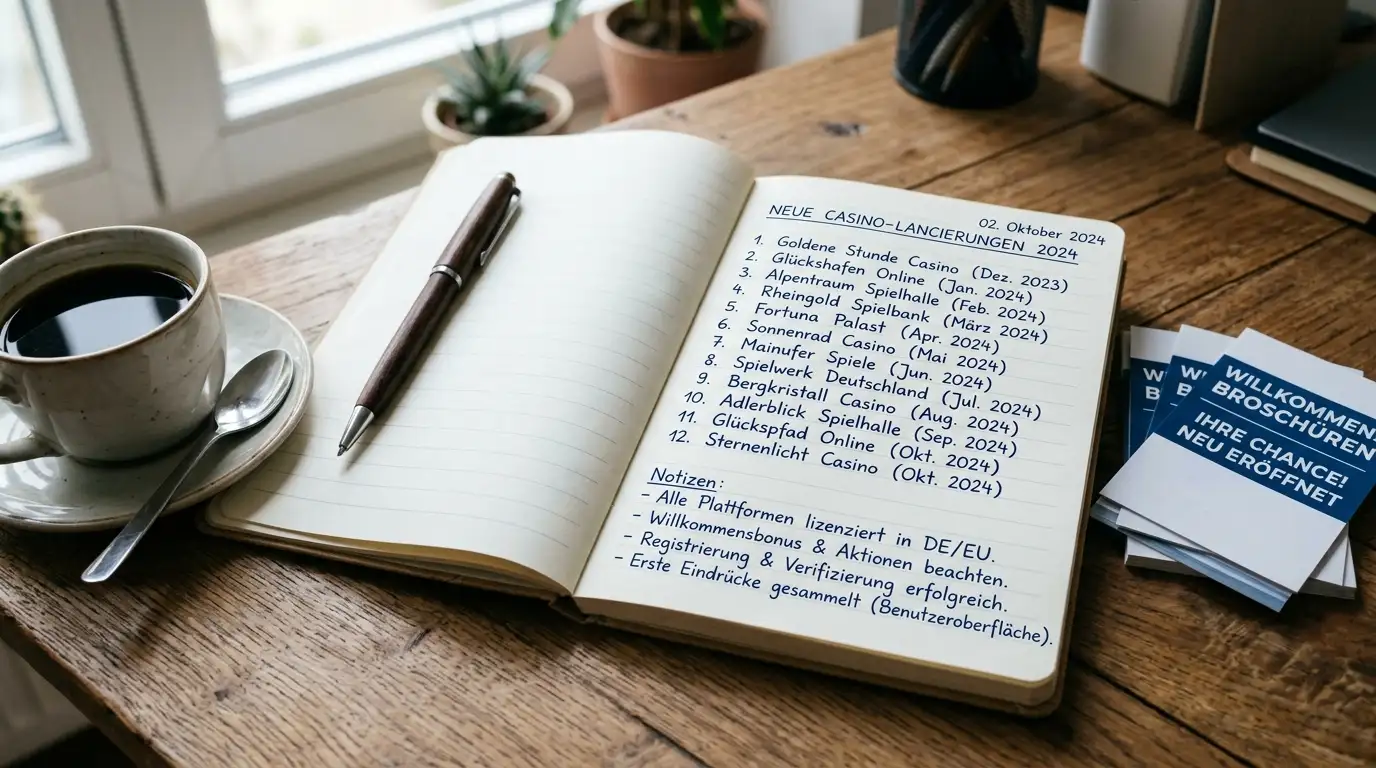 02. Oktober 2024
NEUE CASINO-LANCIERUNGEN 2024
1. Goldene Stunde Casino (Dez. 2023)
2. Glückshafen Online (Jan. 2024)
3. Alpentraum Spielhalle (Feb. 2024)
4. Rheingold Spielbank (März 2024)
5. Fortuna Palast (Apr. 2024)
6. Sonnenrad Casino (Mai 2024)
7. Mainufer Spiele (Jun. 2024)
8. Spielwerk Deutschland (Jul. 2024)
9. Bergkristall Casino (Aug. 2024)
10. Adlerblick Spielhalle (Sep. 2024)
11. Glückspfad Online (Okt. 2024)
12. Sternenlicht Casino (Okt. 2024)
Notizen:
- Alle Plattformen lizenziert in DE/EU.
- Willkommensbonus & Aktionen beachten.
- Registrierung & Verifizierung erfolgreich.
- Erste Eindrücke gesammelt (Benutzeroberfläche).
WILLKOMMEN
BROSCHÜREN
IHRE CHANCE!
NEU ERÖFFNET